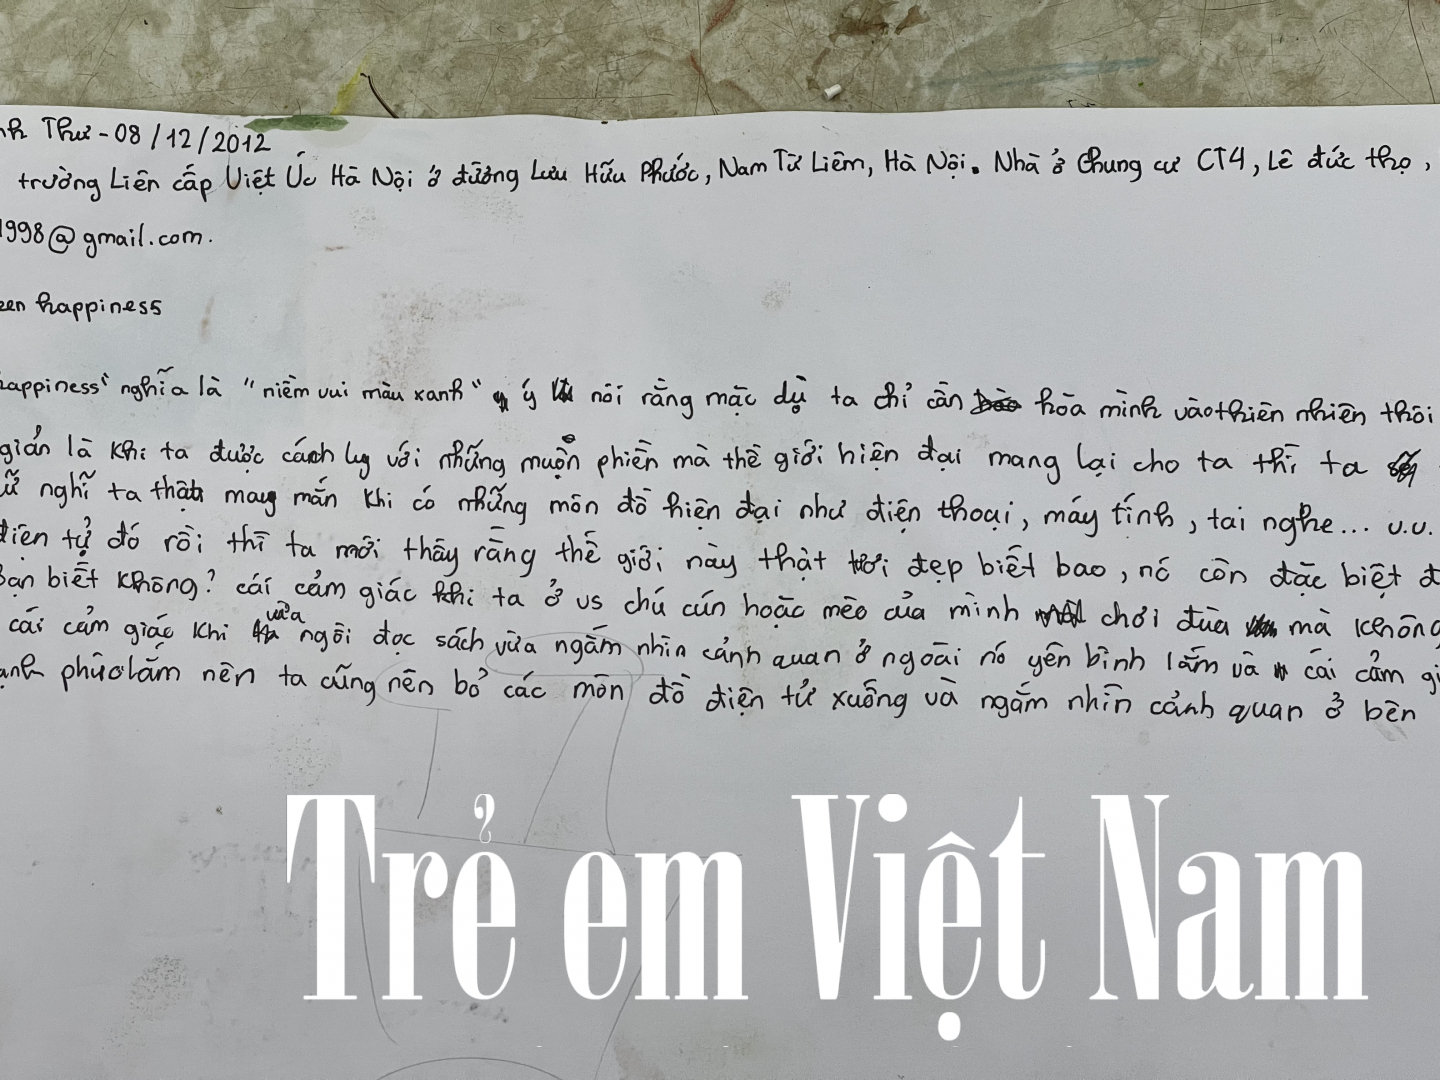 Thư - 08/12/2012
trường Liên cấp Việt Úc Hà Nội ở đường Lưu Hữu Phước, Nam Từ Liêm, Hà Nội. Nhà ở Chung cư CT4, Lê đức thọ,
1998@gmail.com.
happiness
happiness" nghĩa là "niềm vui màu xanh" ý nói rằng mặc dụ ta chỉ cần hòa mình vào thiên nhiên thôi
giản là khi ta được cách ly với những muộn phiền mà thế giới hiện đại mang lại cho ta thì ta
nghĩ ta thật may mắn khi có những món đồ hiện đại như điện thoại, máy tính, tai nghe... v.v.
điện tử đó rồi thì ta mới thấy rằng thế giới này thật tươi đẹp biết bao, nó còn đặc biệt
Bạn biết không? cái cảm giác khi ta ở vs chú cún hoặc mèo của mình chơi đùa mà không
cái cảm giác khi vừa ngồi đọc sách vừa ngắm nhìn cảnh quan ở ngoài nó yên bình lắm và cái cảm
phúc lắm nên ta cũng nên bỏ các món đồ điện tử xuống và ngắm nhìn cảnh quan ở bên
Trẻ em Việt Nam